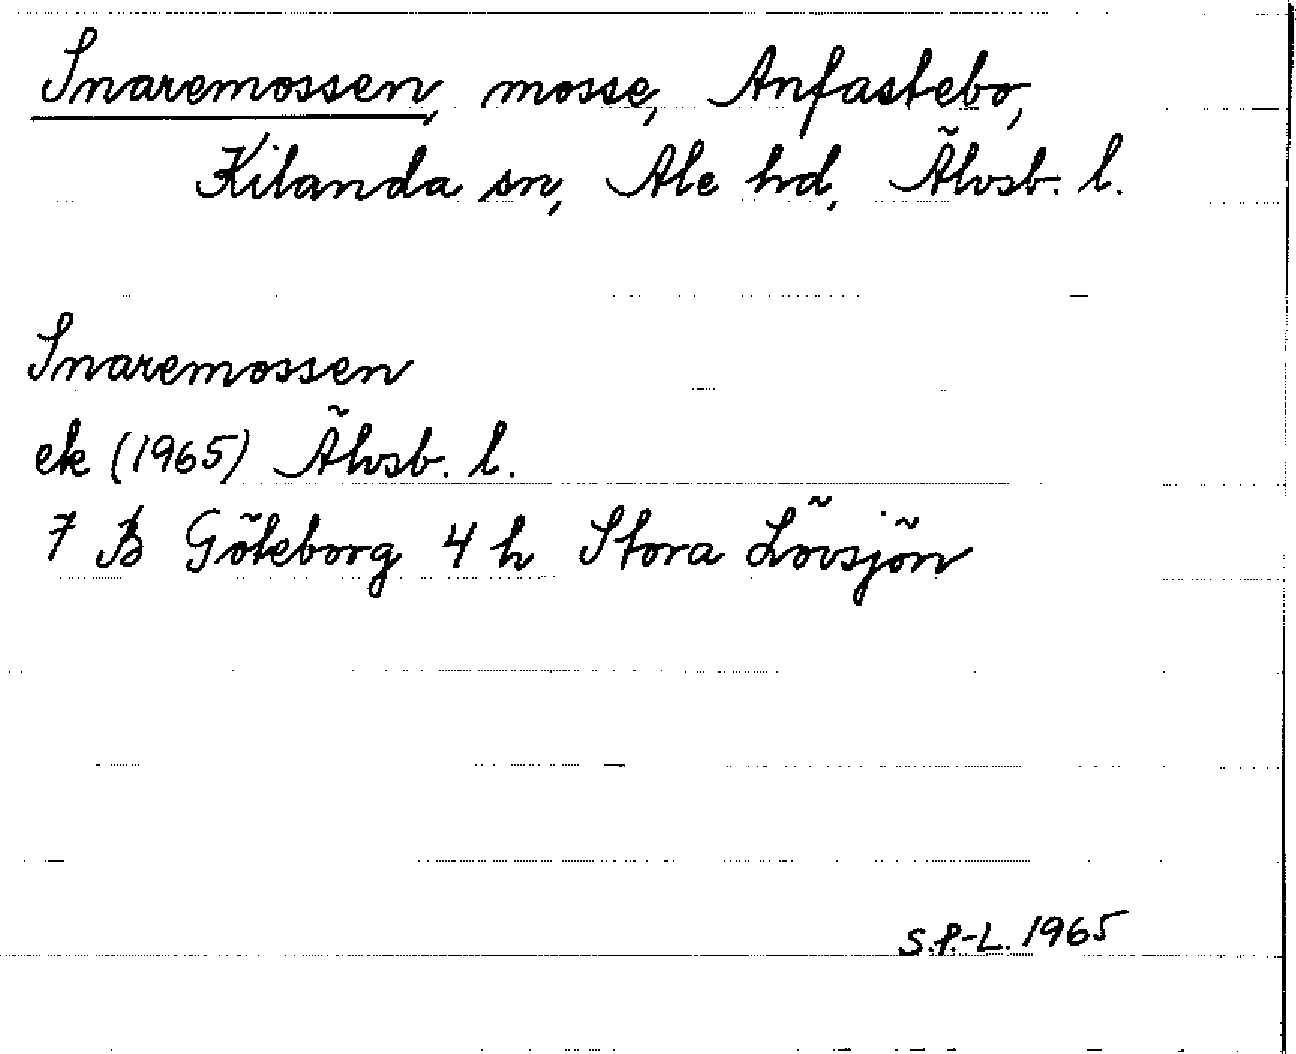 Snaremossen, mosse, Anfastebo,
Kilanda sn, Ale hd, Älvsb. l.
Snaremossen
ek (1965) Älvsb. l.
7 B Göteborg 4 h Stora Lövsjön
S.P.-L. 1965